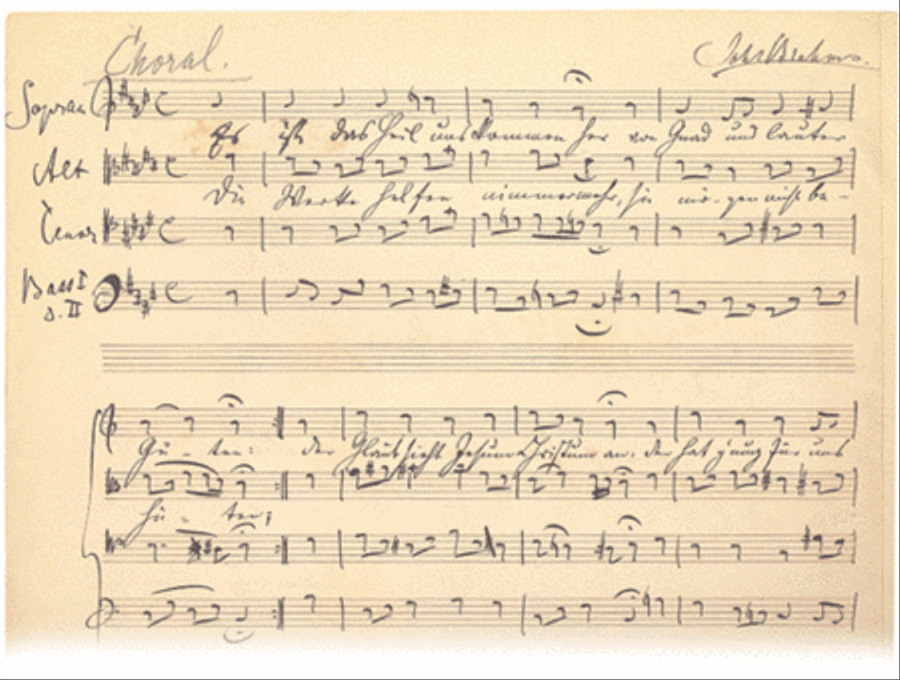 Choral. Joh. Brahms.
Sopran
Es ist das Heil uns kommen her von Gnad und lauter
Alt
Die Werke helfen nimmermehr, sie mö-gen nicht be-
Tenor
Bass I
u. II
Gü - ten: der Glaub sieht Jesum Christum an: der hat g'nug für uns
hü - ten;